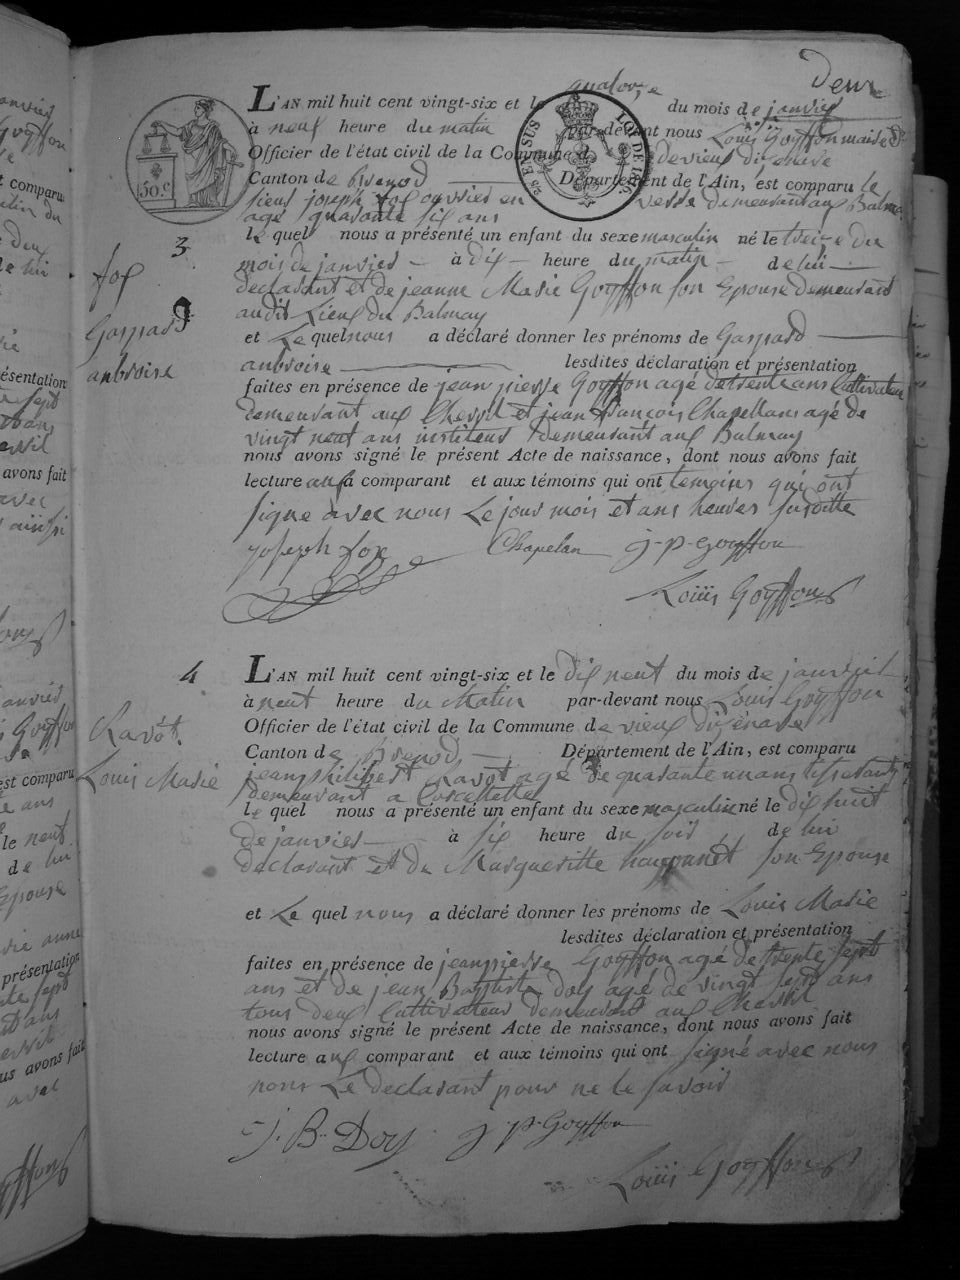 Deux
L'AN mil huit cent vingt-six et le quatorze du mois de janvier
à neuf heure du matin par-devant nous Louis Goyffon maire
Officier de l'état civil de la Commune de vieux dizenave
Canton de brenod Département de l'Ain, est comparu le
sieur joseph fox ouvrier en verre demeurant au Balmay
agé quarante six ans
3
le quel nous a présenté un enfant du sexe masculin né le treize du
mois de janvier à dix heure du matin de lui
fox
declarant et de jeanne Marie Goyffon son Epouse demeurant
audit Lieux du Balmay
Gaspard
et Le quel nous a déclaré donner les prénoms de Gaspard
anbroise
anbroise lesdites déclaration et présentation
faites en présence de jean pierre Goyffon agé de trente ans Cultivateur
demeurant aux Chevril et jean françois Chapellans agé de
vingt neuf ans instituteur demeurant aux Balmay
nous avons signé le présent Acte de naissance, dont nous avons fait
lecture aux comparant et aux témoins qui ont temoins qui ont
signe avec nous Le jour mois et ans heures susditte
joseph fox Chapelan j-p-Goyffon
Louis Goyffon
4
L'AN mil huit cent vingt-six et le dix neuf du mois de janvier
à neuf heure du Matin par-devant nous Louis Goyffon
Officier de l'état civil de la Commune de vieux dizenave
Ravôt.
Canton de Brenod Département de l'Ain, est comparu
Louis Marie
jean philibert Ravot agé de quarante un ans tisserant
demeurant a Corcellettes
le quel nous a présenté un enfant du sexe masculin né le dix huit
de janvier à six heure du soir de lui
declarant et de Margueritte son Epouse
et Le quel nous a déclaré donner les prénoms de Louis Marie
lesdites déclaration et présentation
faites en présence de jean pierre Goyffon agé de trente sept
ans et de jean Baptiste doy agé de vingt sept ans
tous deux Cultivateur demeurant aux Chevril
nous avons signé le présent Acte de naissance, dont nous avons fait
lecture aux comparant et aux témoins qui ont signé avec nous
nous Le declarant pour ne le savoir
j. B. Doy j-p-Goyffon
Louis Goyffon